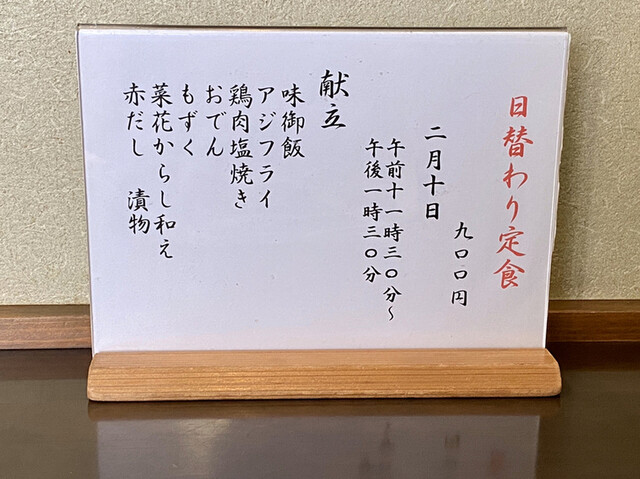 日替わり定食
九〇〇円
二月十日
午前十一時三〇分～
午後一時三〇分
献立
味御飯
アジフライ
鶏肉塩焼き
おでん
もずく
菜花からし和え
赤だし　漬物